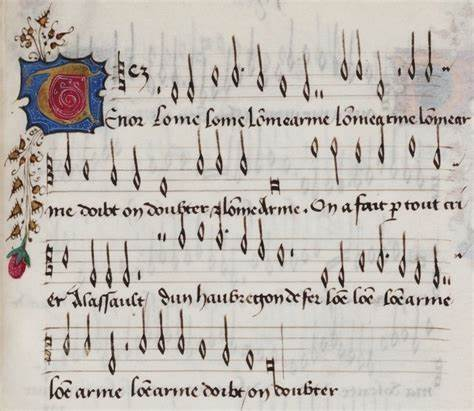 Tenor Lome lome lōmearme lōmearme lōmear
me doibt on doubter Lōmearme. On a fait ꝑ tout cri
er Alassault dun haubregon de fer lōe lōe lōearme
lōe arme lōe arme doibt on doubter